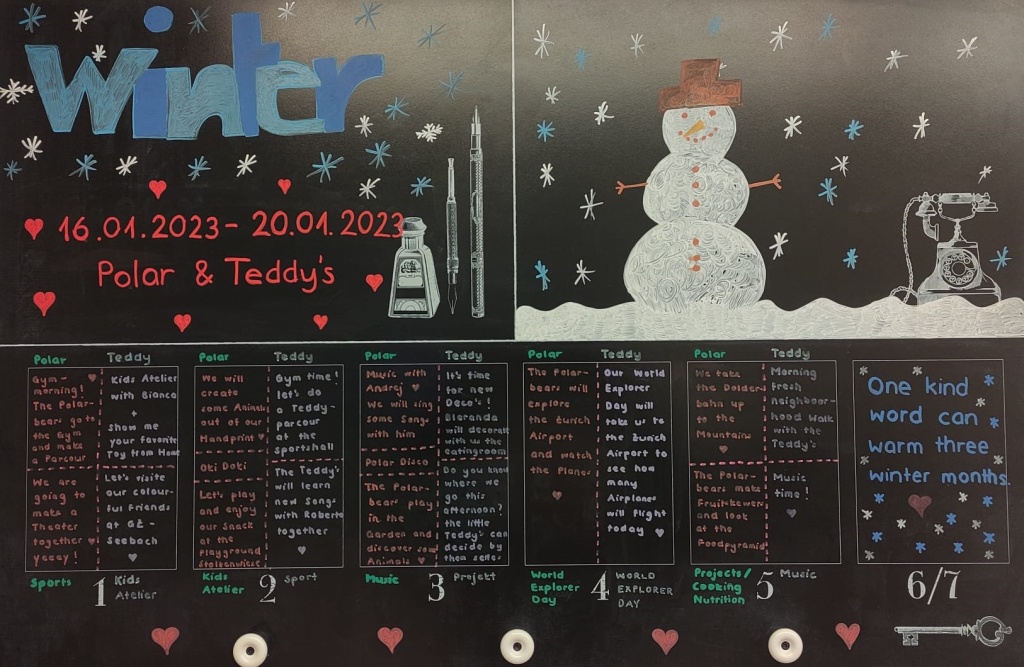 Winter
16.01.2023 - 20.01.2023
Polar & Teddy's
Polar
Gym-
morning!
The Polar-
bears go to
the Gym
and make
a Parcour
We are
going to
make a
Theater
together
yeeay!
Sports
Teddy
Kids Atelier
with Bianca
+
Show me
your favorite
Toy from Home
Let's visite
our colour-
ful Friends
at GZ-
Seebach
Kids
Atelier
1
Polar
We will
create
some Animals
out of our
Handprint
Oki Doki
Let's play
and enjoy
our Snack
at the
Playground
Stolzenwiese
Kids
Atelier
Teddy
Gym time!
let's do
a Teddy-
parcour
at the
sportshall
The Teddy's
will learn
new Songs
with Roberto
together
Sport
2
Polar
Music with
Andrej
We will sing
some Songs
with him
Polar Disco
The Polar-
bears play
in the
Garden and
discover some
Animals
Music
Teddy
It's time
for new
Deco's!
Bleranda
will decorate
with us the
eatingroom
Do you know
where we
go this
afternoon?
the little
Teddy's can
decide by
them selfes
Projekt
3
Polar
The Polar-
bears will
explore
the Zurich
Airport
and watch
the Planes
World
Explorer
Day
Teddy
Our World
Explorer
Day will
take us to
the Zurich
Airport to
see how
many
Airplanes
will Flight
today
WORLD
EXPLORER
DAY
4
Polar
We take
the Dolder-
bahn up
to the
Mountains
The Polar-
bears make
Fruitskewers
and look
at the
Foodpyramid
Projects/
Cooking
Nutrition
Teddy
Morning
fresh
neighbour-
hood Walk
with the
Teddy's
Music
time!
Music
5
One kind
word can
warm three
winter months.
6/7